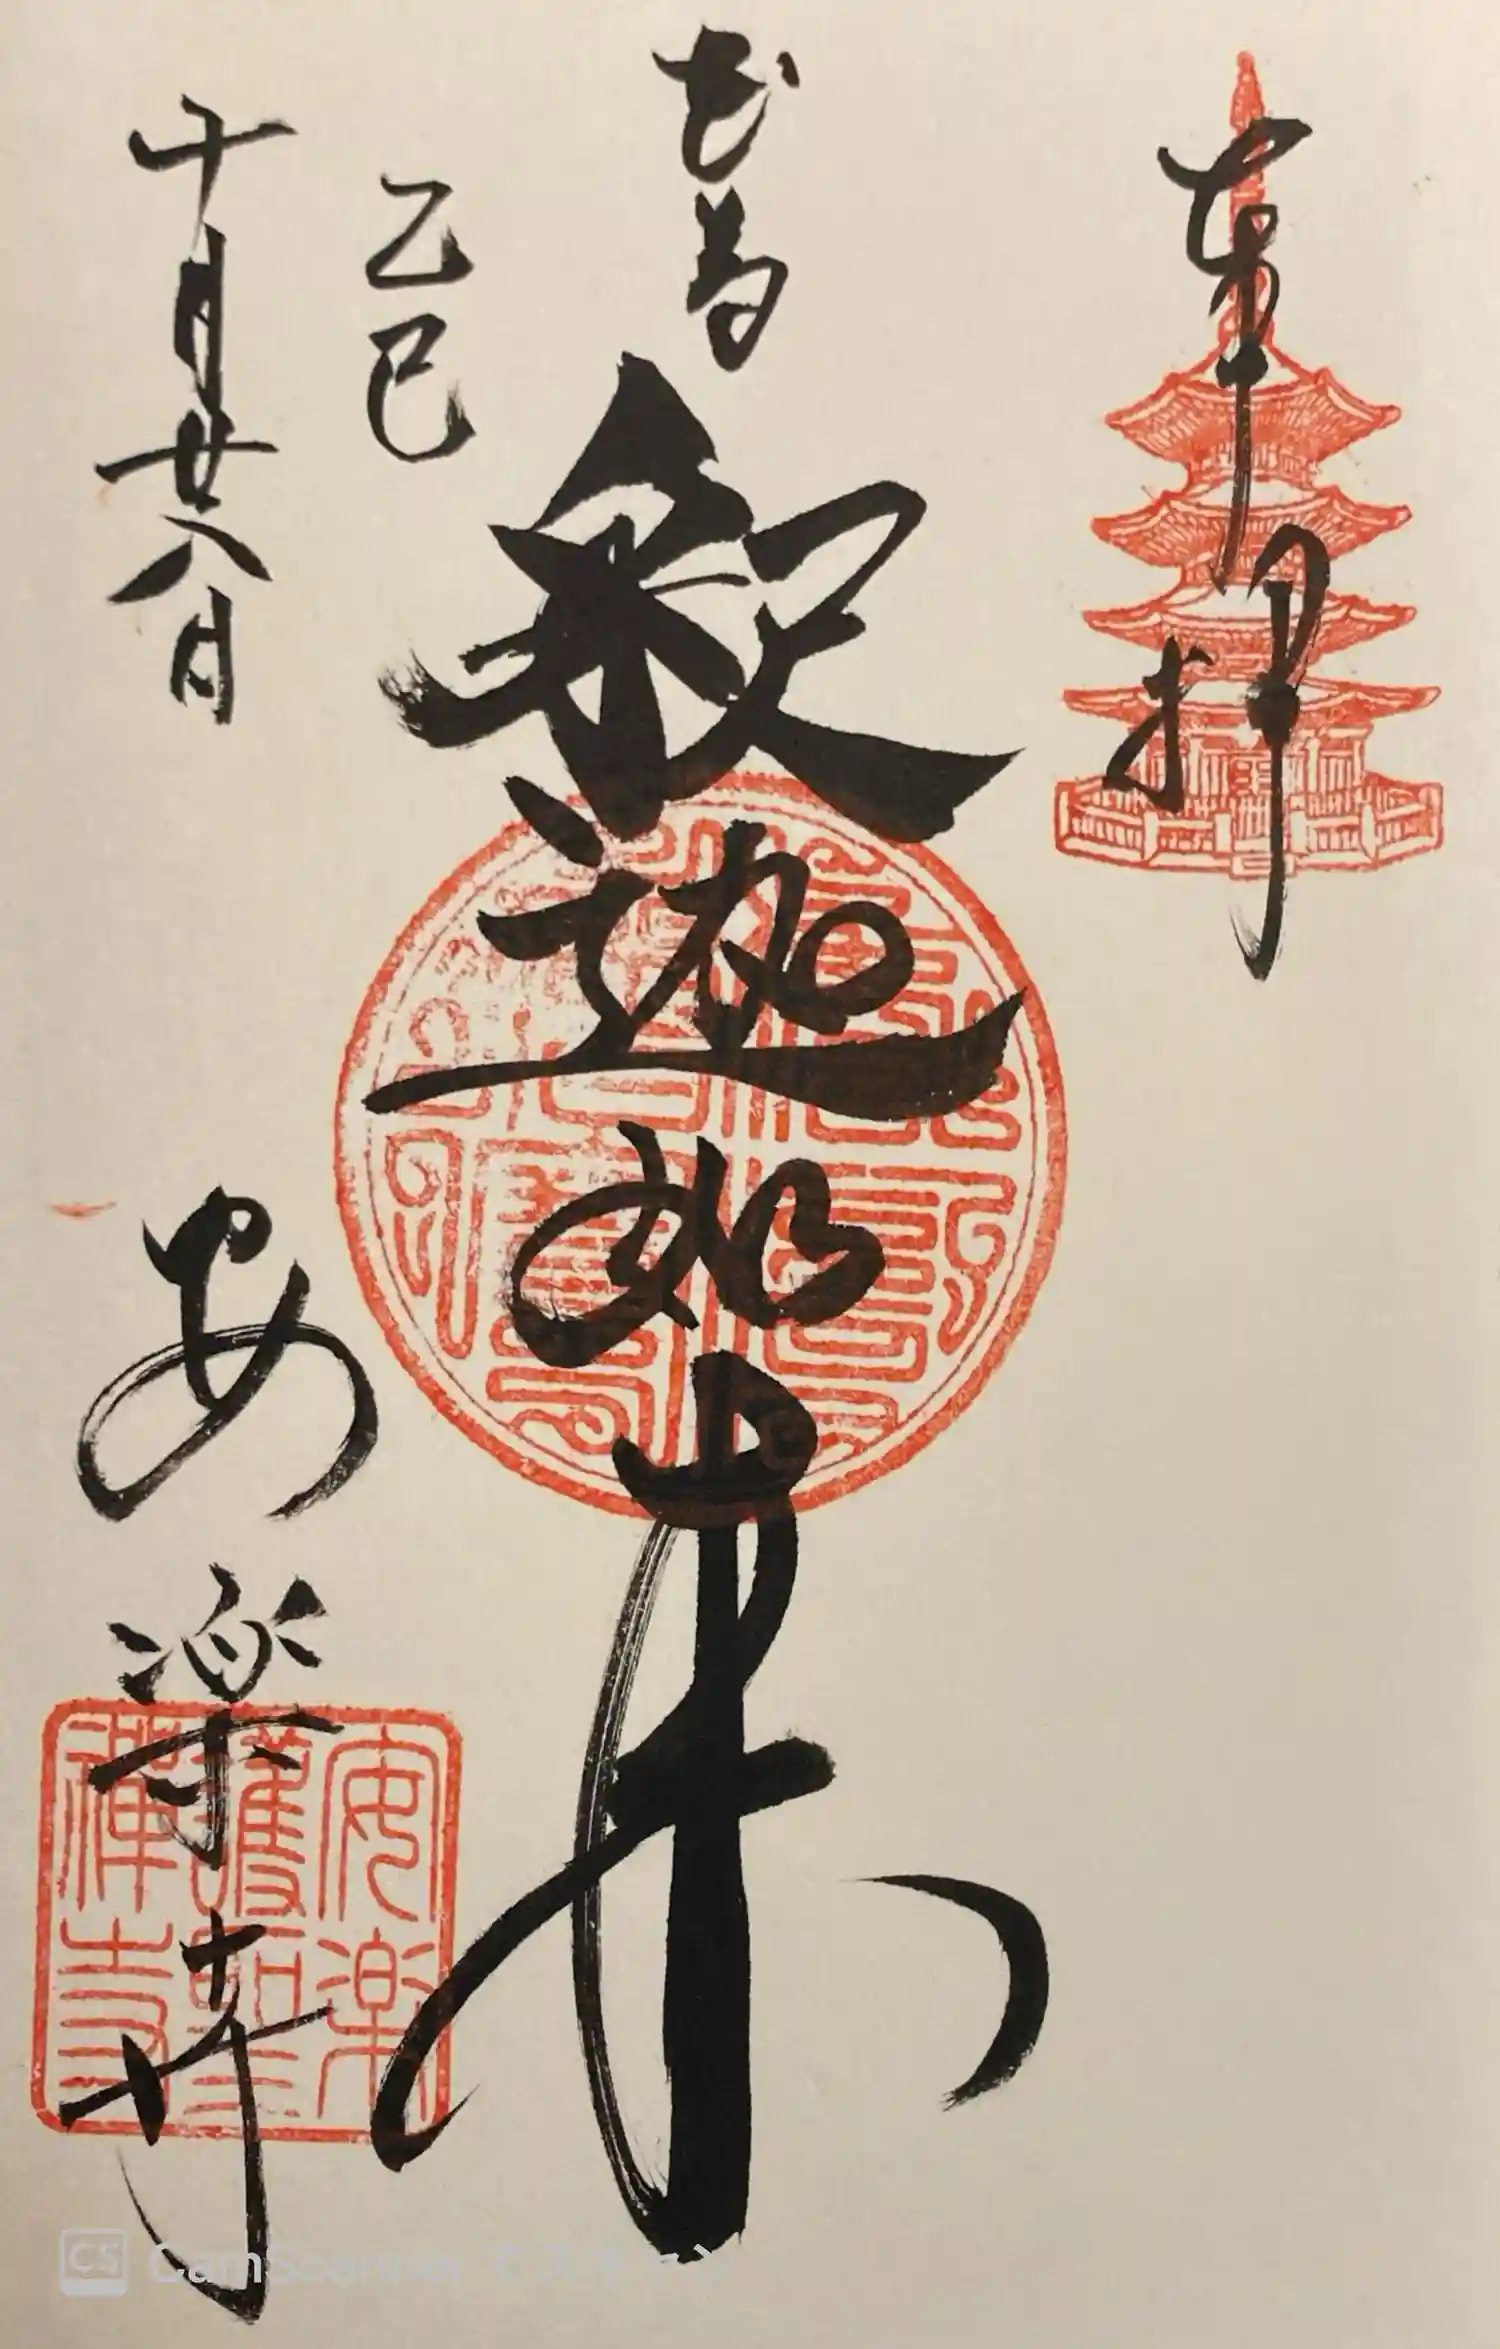 奉拝
釈迦如来
乙巳
十月廿八日
安楽寺
安楽
護聖
禪寺
CS CamScanner でスキャン